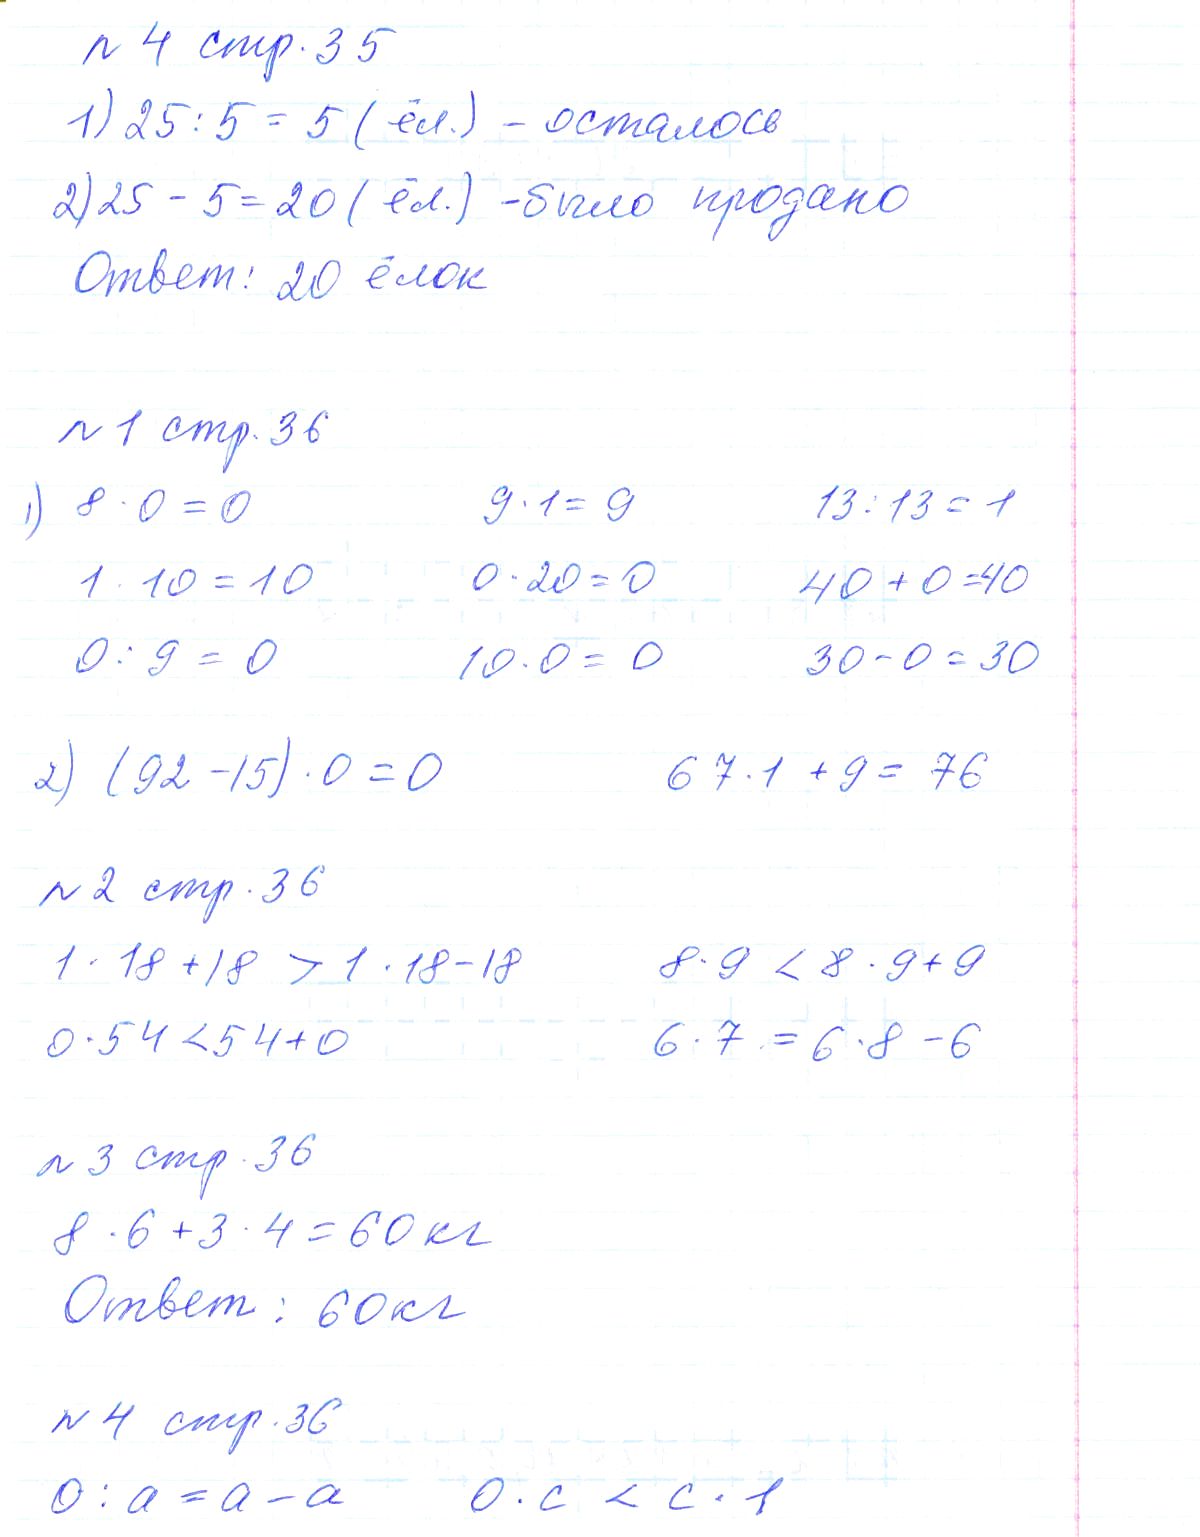 № 4 стр. 35
1) 25 : 5 = 5 (ёл.) – осталось
2) 25 – 5 = 20 (ёл.) – было продано
Ответ: 20 ёлок
№ 1 стр. 36
1) 8 · 0 = 0 9 · 1 = 9 13 : 13 = 1
1 · 10 = 10 0 · 20 = 0 40 + 0 = 40
0 : 9 = 0 10 · 0 = 0 30 – 0 = 30
2) (92 – 15) · 0 = 0 67 · 1 + 9 = 76
№ 2 стр. 36
1 · 18 + 18 > 1 · 18 – 18 8 · 9 < 8 · 9 + 9
0 · 54 < 54 + 0 6 · 7 = 6 · 8 – 6
№ 3 стр. 36
8 · 6 + 3 · 4 = 60 кг
Ответ: 60 кг
№ 4 стр. 36
0 : а = а – а 0 · с < с · 1